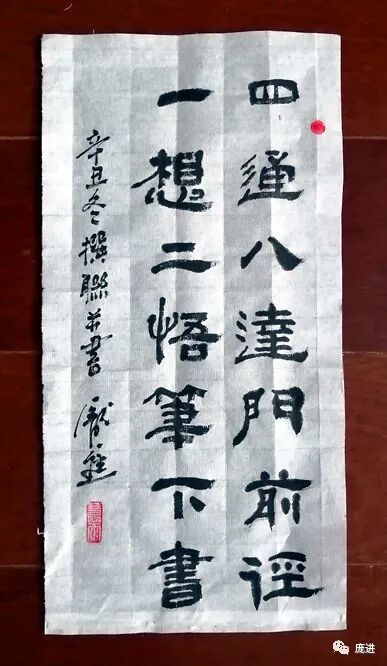 四通八達門前徑
一想二悟筆下書
辛丑冬撰聯并書 龐進
庞进